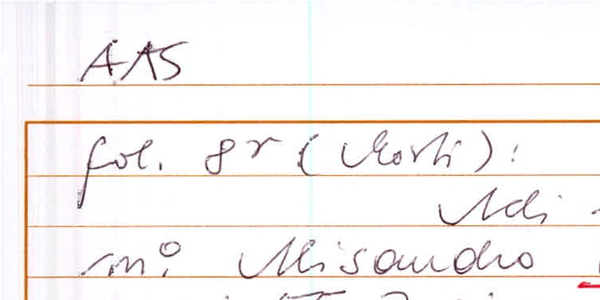 AAS
fol. 8r (Morti):
Adi
m:º Alisandro